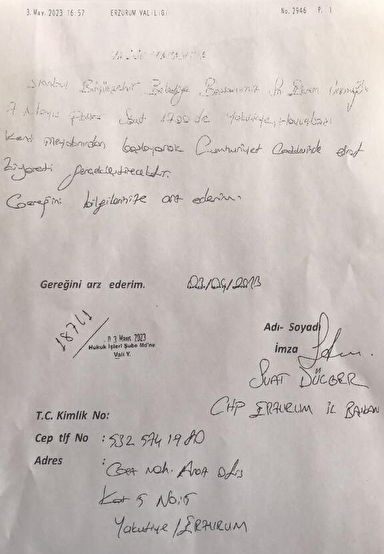 3. May. 2023 16:57 ERZURUM VALILIGI No. 2946 P. 1
İstanbul Büyükşehir Belediye Başkanımız
7 Mayıs Pazar Saat 17.00'de Yakutiye, Havuzbaşı
Kent meydanından başlayarak Cumhuriyet Caddesinde esnaf
ziyareti gerçekleştirecektir.
Gereğini bilgilerinize arz ederim.
Gereğini arz ederim.
18761
03 Mayıs 2023
Hukuk İşleri Şube Md.ne
Vali Y.
Adı- Soyadı
İmza
SUAT DÜLGER
CHP ERZURUM İL BAŞKAN
T.C. Kimlik No:
Cep tlf No : 532 574 19 80
Adres :
Kat 5 No:5
Yakutiye / ERZURUM